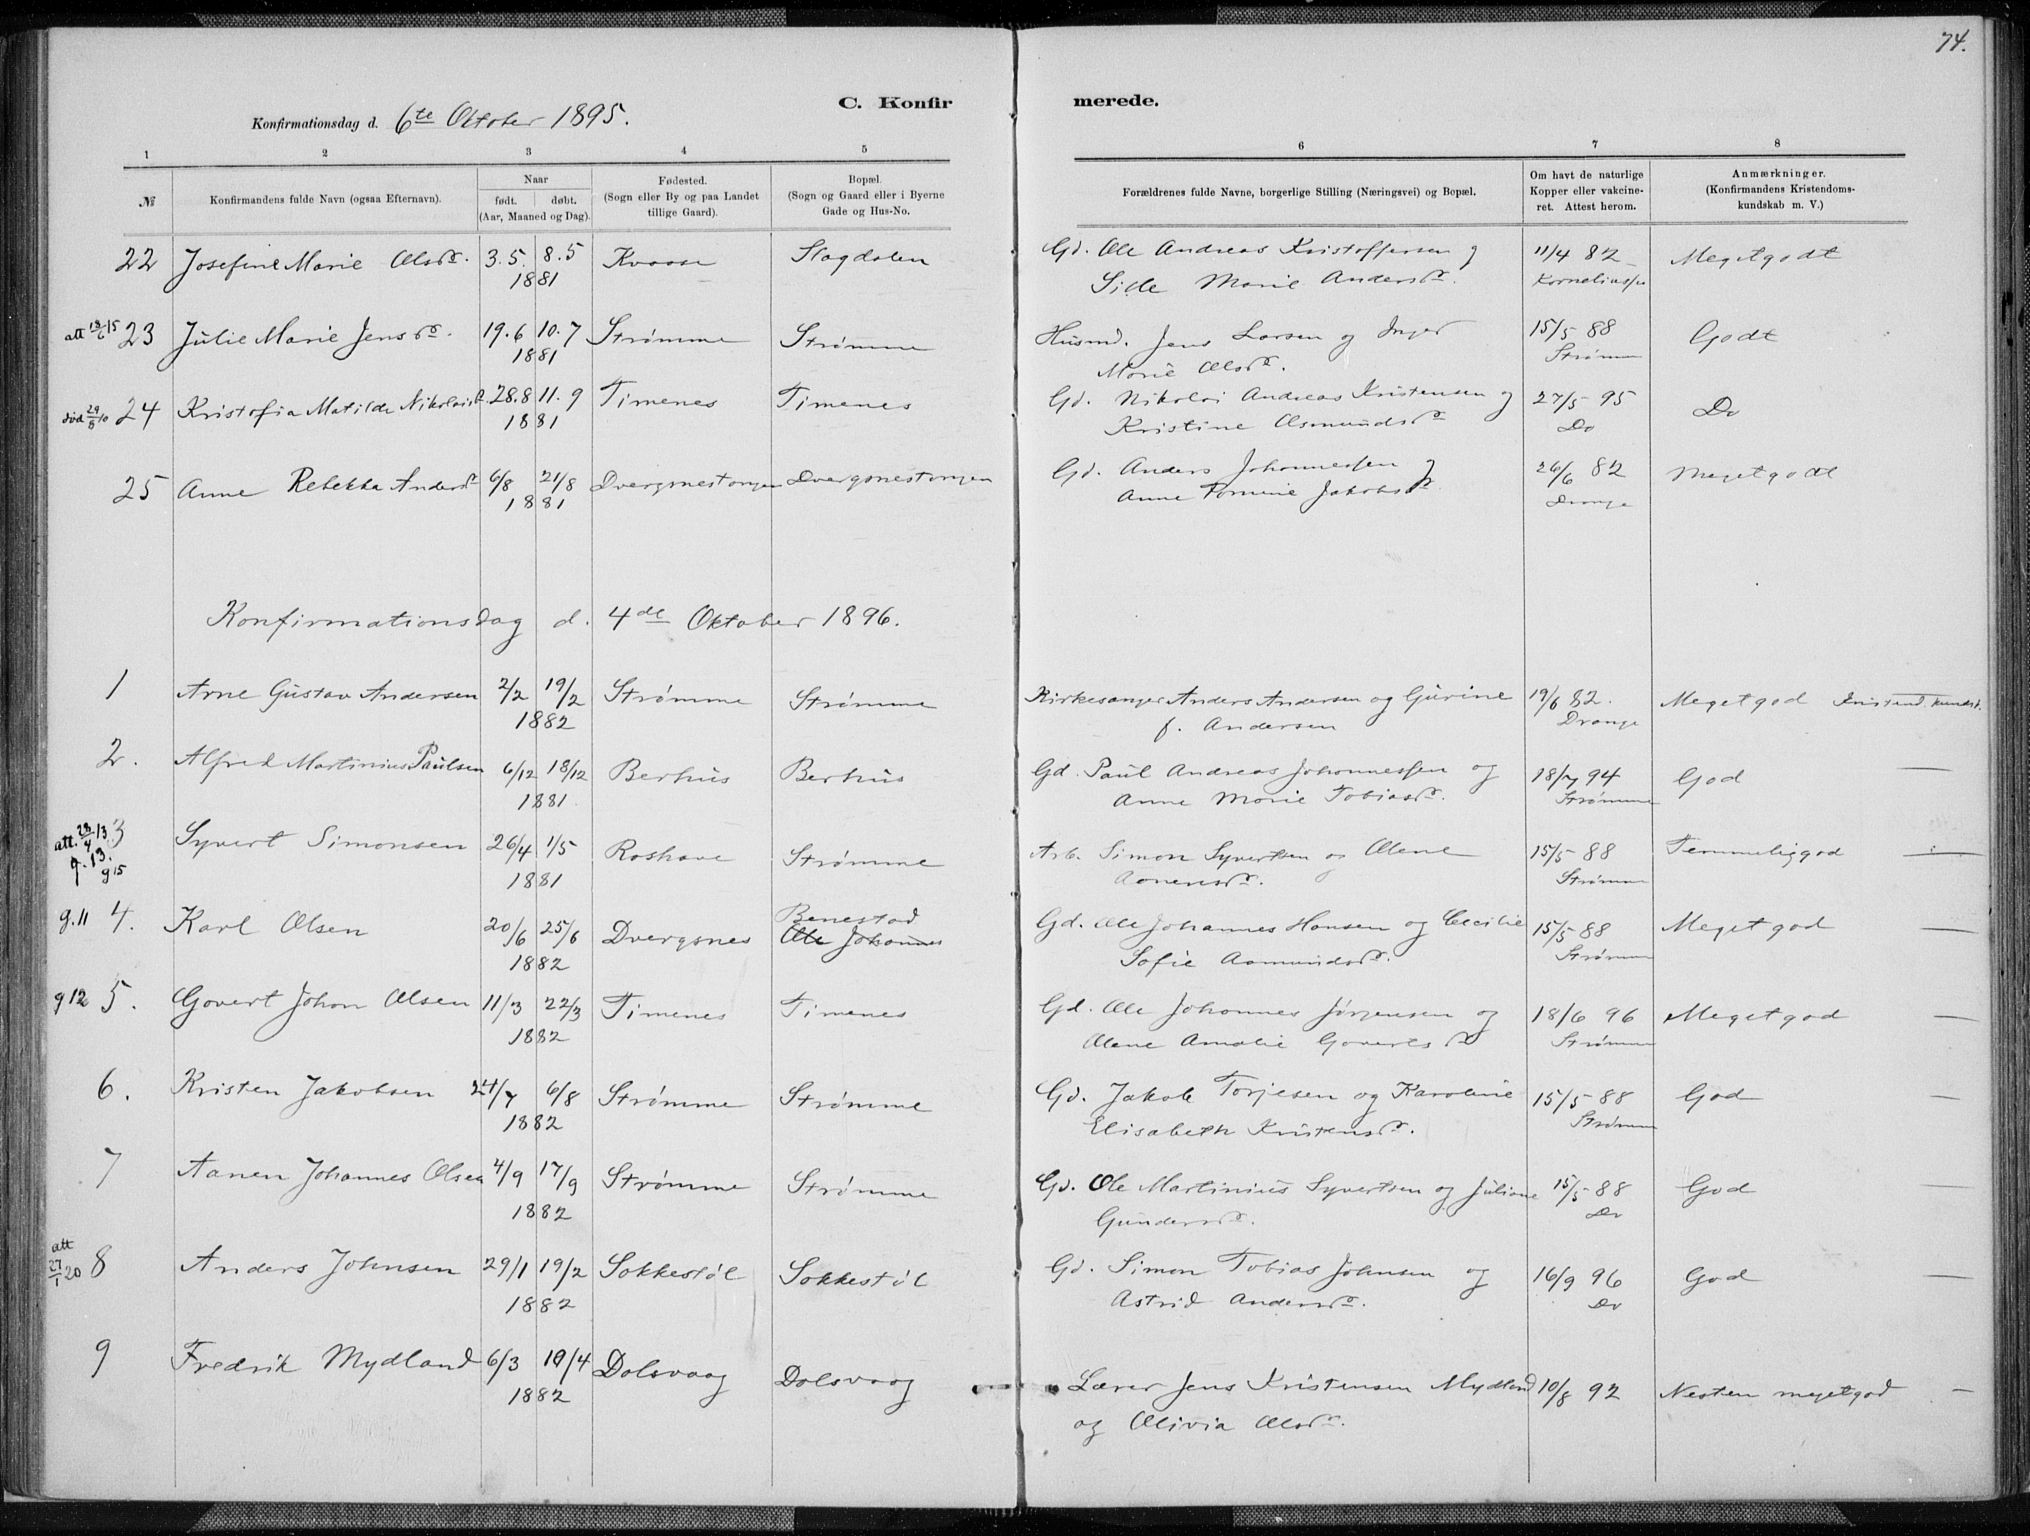 74.
C. Konfir
merede.
Konfirmationsdag d. 6te Oktober 1895.
1 2 3 4 5 6 7 8
№
Konfirmandens fulde Navn (ogsaa Efternavn).
Naar
født. døbt.
(Aar, Maaned og Dag).
Fødested.
(Sogn eller By og paa Landet
tillige Gaard).
Bopæl.
(Sogn og Gaard eller i Byerne
Gade og Hus-No.
Forældrenes fulde Navne, borgerlige Stilling (Næringsvei) og Bopæl.
Om havt de naturlige
Kopper eller vakcine-
ret. Attest herom.
Anmærkninger.
(Konfirmandens Kristendoms-
kundskab m. V.)
22 Josefine Marie Olsdr. 3.5. 8.5 Kvaase Slagdalen Gd. Ole Andreas Kristoffersen og 11/4 82 Megetgodt
1881 Sille Marie Andersdr.
att 13/6 15 23 Julie Marie Jensdr. 19.6 10.7 Strømme Strømme Husmd. Jens Larsen og Inger 15/5 88 Godt
1881 Marie Olsdr. Strømm
død 29/8 10 24 Kristofia Matilde Nikolaisd. 28.8 11.9 Timenes Timenes Gd. Nikolai Andreas Kristensen og 27/5 95 Do
1881 Kristine Osmundsdr Do
25 Anne Rebekka Andersdr 6/8 21/8 Dvergsnestangen Dvergsnestangen Gd. Anders Johannessen og 26/6 82 Megetgodt
1881 Anne Tomine Jakobsdr. Drange
Konfirmationsdag d. 4de Oktober 1896.
1 Arne Gustav Andersen 2/2 19/2 Strømme Strømme Kirkesanger Anders Andersen og Gurine 19/6 82. Megetgod Kristend. kundsk.
1882 f. Andersen Drange
2. Alfred Martinius Paulsen 6/12 18/12 Berhus Berhus Gd. Paul Andreas Johannessen og 18/7 94 God —
1881. Anne Marie Tobiasdr. Strømme
att. 23/4 13 3 Syvert Simonsen 26/4 1/5 Roshave Strømme Arb. Simon Syvertsen og Olene 15/5 88 Temmeliggod —
g. 13. g15 1881 Aanensdr. Strømm
g.11 4. Karl Olsen 20/6 25/6 Dvergsnes Benestad Gd. Ole Johannes Hansen og Cecilie 15/5 88 Megetgod —
1882 Ole Johannes Sofie Aamundsdr. Strømm
g12 5. Govert Johan Olsen 11/3 22/3 Timenes Timenes Gd. Ole Johannes Jørgensen og 18/6 96 Megetgod —
1882 Olene Amalie Govertsdr Strømm
6. Kristen Jakobsen 24/7 6/8 Strømme Strømme Gd. Jakob Torjesen og Karoline 15/5 88 God —
1882 Elisabeth Kristensdr. Strømm
7 Aanen Johannes Olsen 4/9 17/9 Strømme Strømme Gd. Ole Martinius Syvertsen og Juliane 15/5 88 God —
1882 Gundersdr. Do
att 27/1 20 8 Anders Johnsen 29/1 19/2 Sokkestøl Sokkestøl Gd. Simon Tobias Johnsen og 16/9 96 God —
1882 Astrid Andersdr. Do
9 Fredrik Mydland 6/3 10/4 Dolsvaag Dolsvaag Lærer Jens Kristensen Mydland 10/8 92 Nesten megetgod —
1882 og Olivia Olsdr.